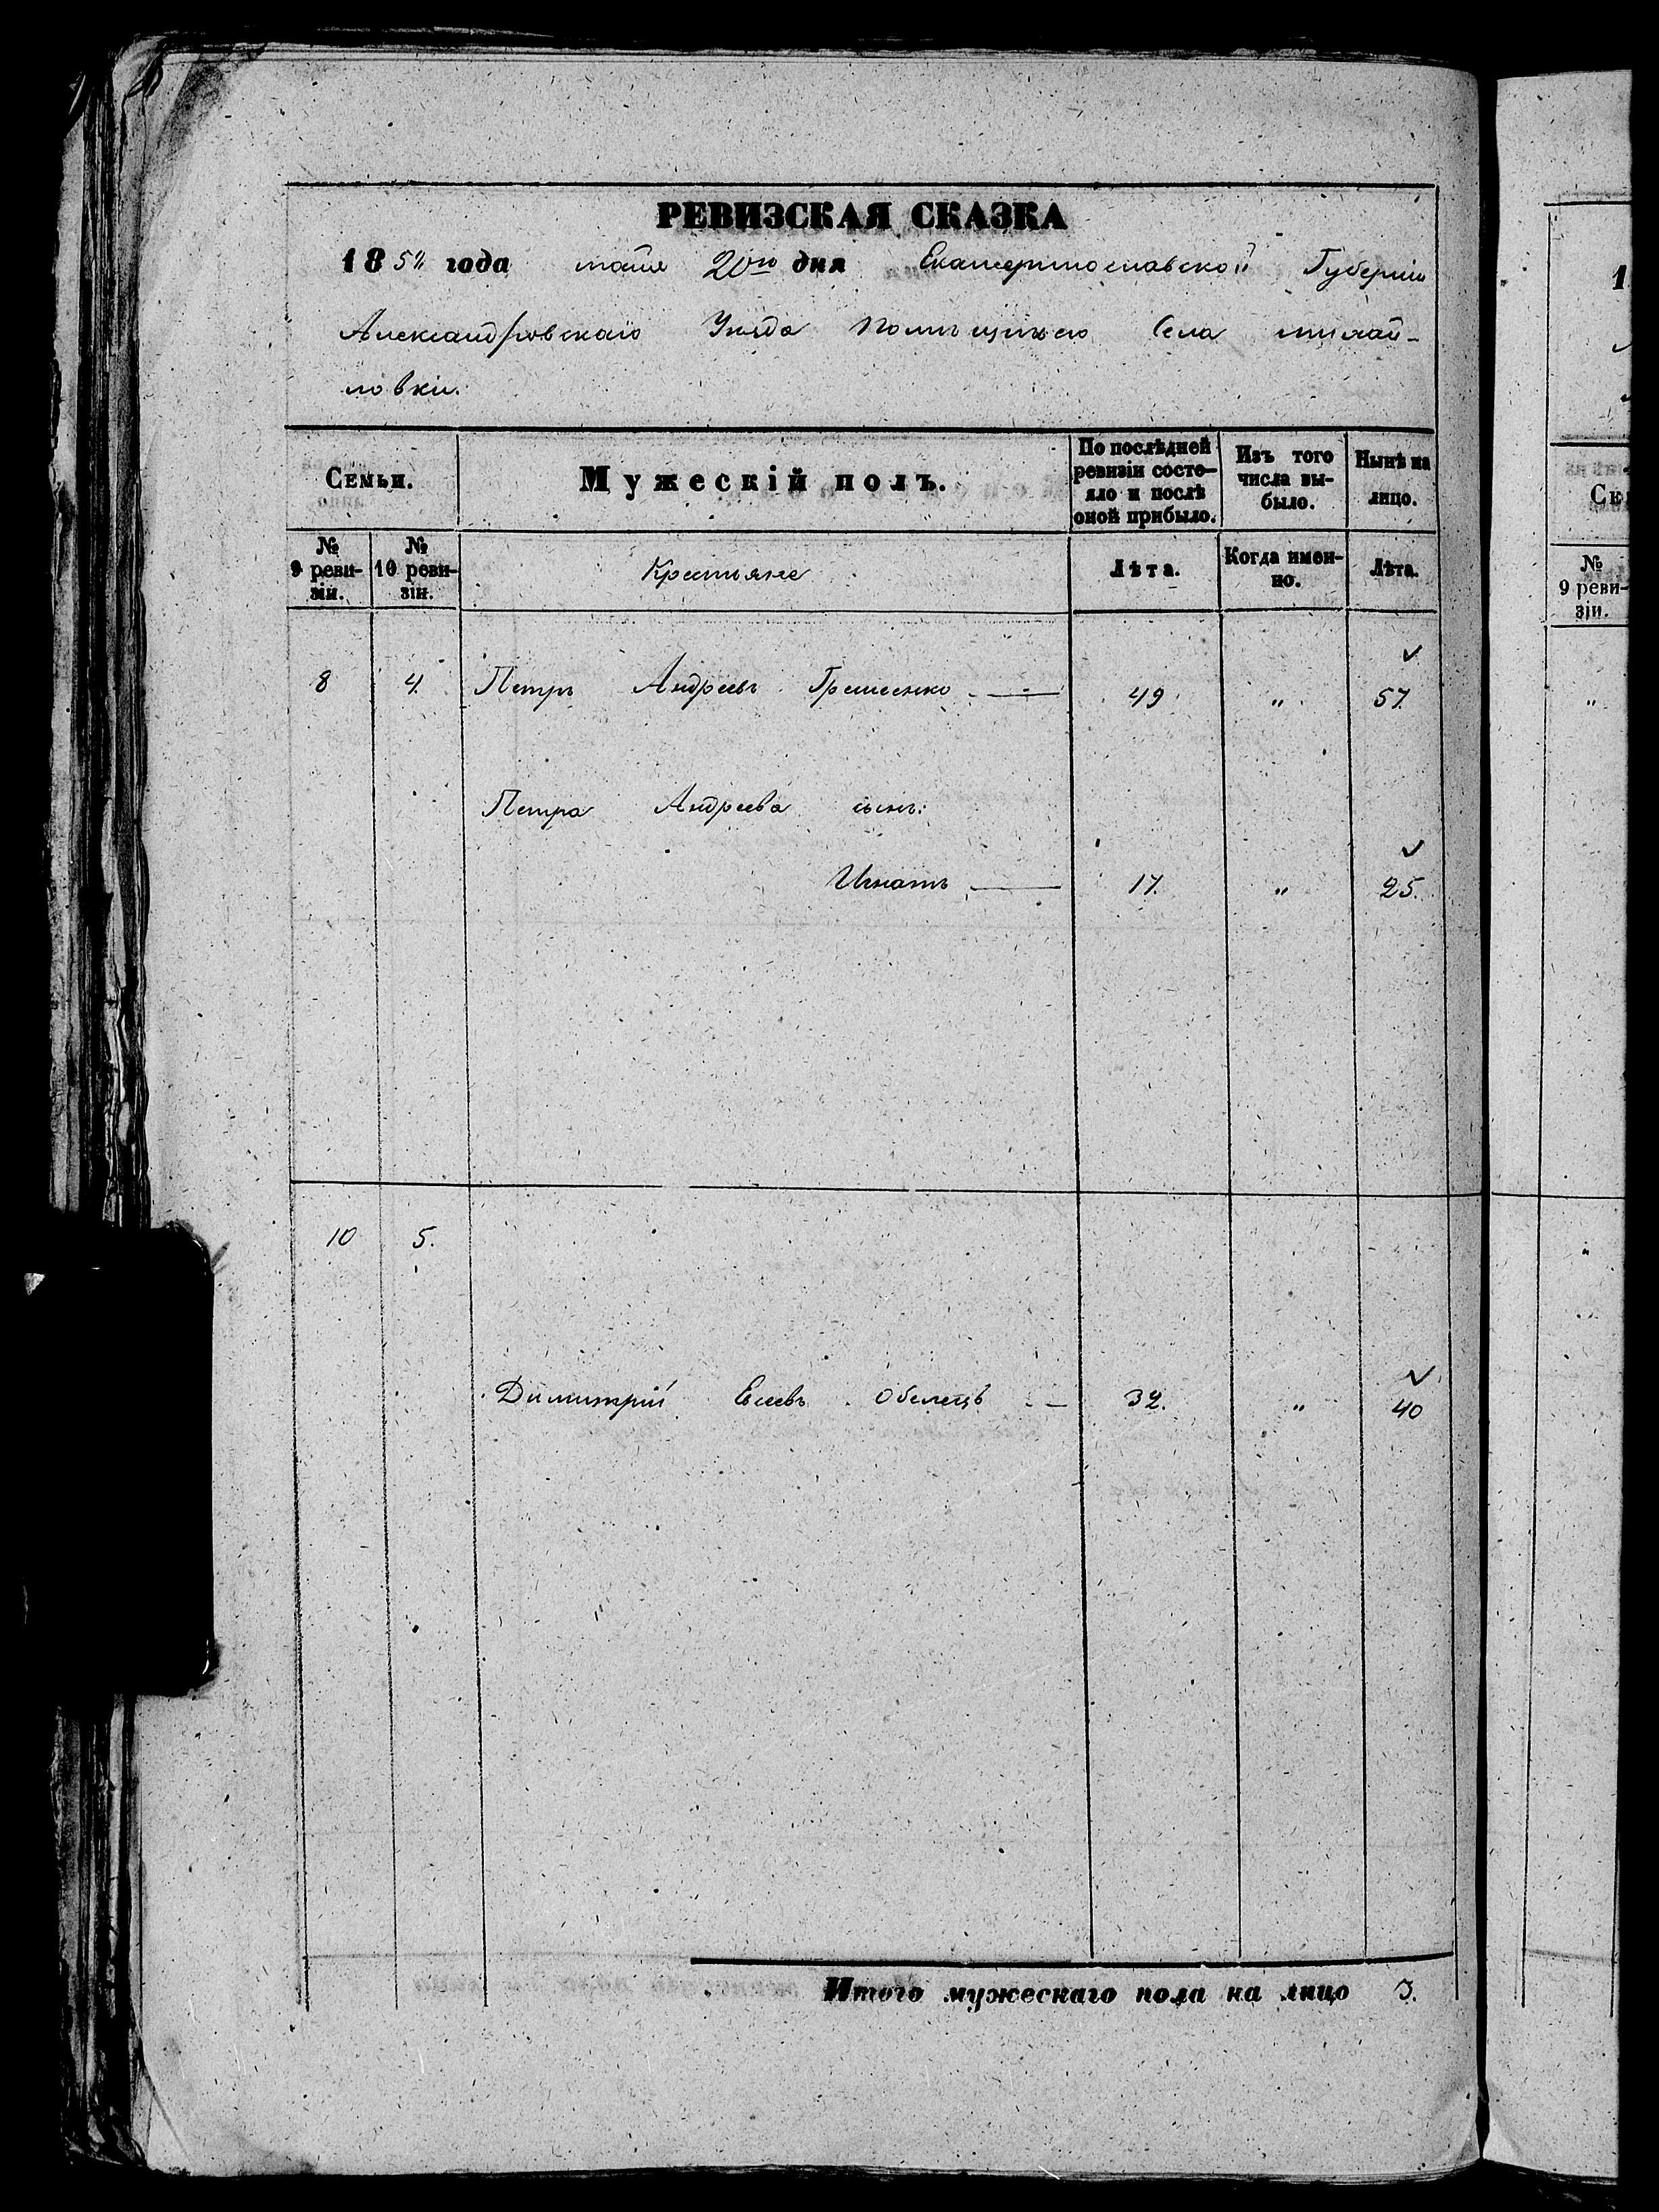 РЕВИЗСКАЯ СКАЗКА
185 года мая 20го дня Екатеринославской Губерніи
Александровскаго Уѣзда Помѣщичьего Села михай-
ловки.
Семьи.
Мужескій полъ.
По послѣдней ревизіи состо-
яло и послѣ оной прибыло.
Изъ того числа вы-
было.
Нынѣ на лицо.
№ 9 реви-
зіи.
№ 10 реви-
зіи.
Крестьяне
Лѣта.
Когда имен-
но.
Лѣта.
8 4. Петръ Андреевъ 49 " 57.
Петра Андреева сынъ:
Игнатъ 17. " 25.
10 5.
Димитрій 32. " 40
Итого мужескаго пола на лицо 3.
1
Се
№
9 реви-
зіи.
"
"